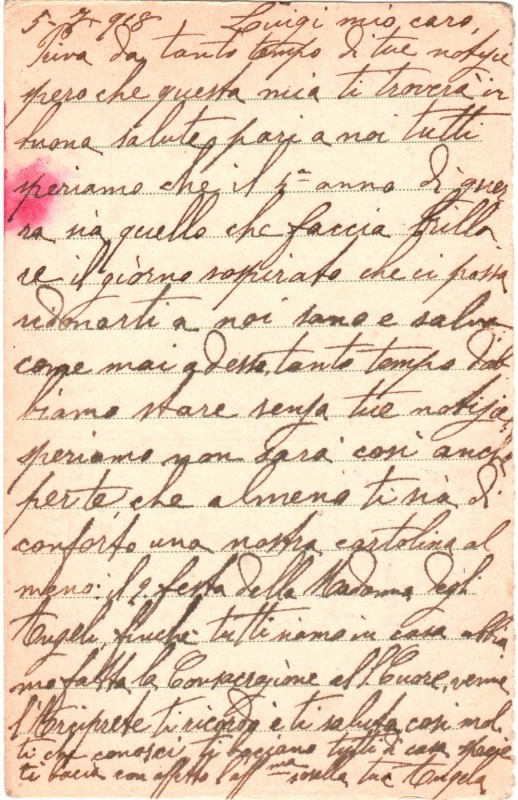 5-7-918 Luigi mio caro,
Priva da tanto tempo di tue notizie
spero che questa mia ti troverà in
buona salute, pari a noi tutti
speriamo che il 5º anno di guer
ra sia quello che faccia brilla
re il giorno sospirato che ci possa
ridonarti a noi sano e salvo
come mai adesso, tanto tempo dob
biamo stare senza tue notizie,
speriamo non sarà così anche
per te, che almeno ti sia di
conforto una nostra cartolina al
meno: il 2. festa della Madonna degli
Angeli, finchè tutti siamo in casa abbia
mo fatta la Consacrazione al S. Cuore, venne
l'Arciprete ti ricordò e ti saluta così mol
ti che conosci, ti baciano tutti di casa, specie
ti bacia con affetto l'aff.ma sorella tua Angela